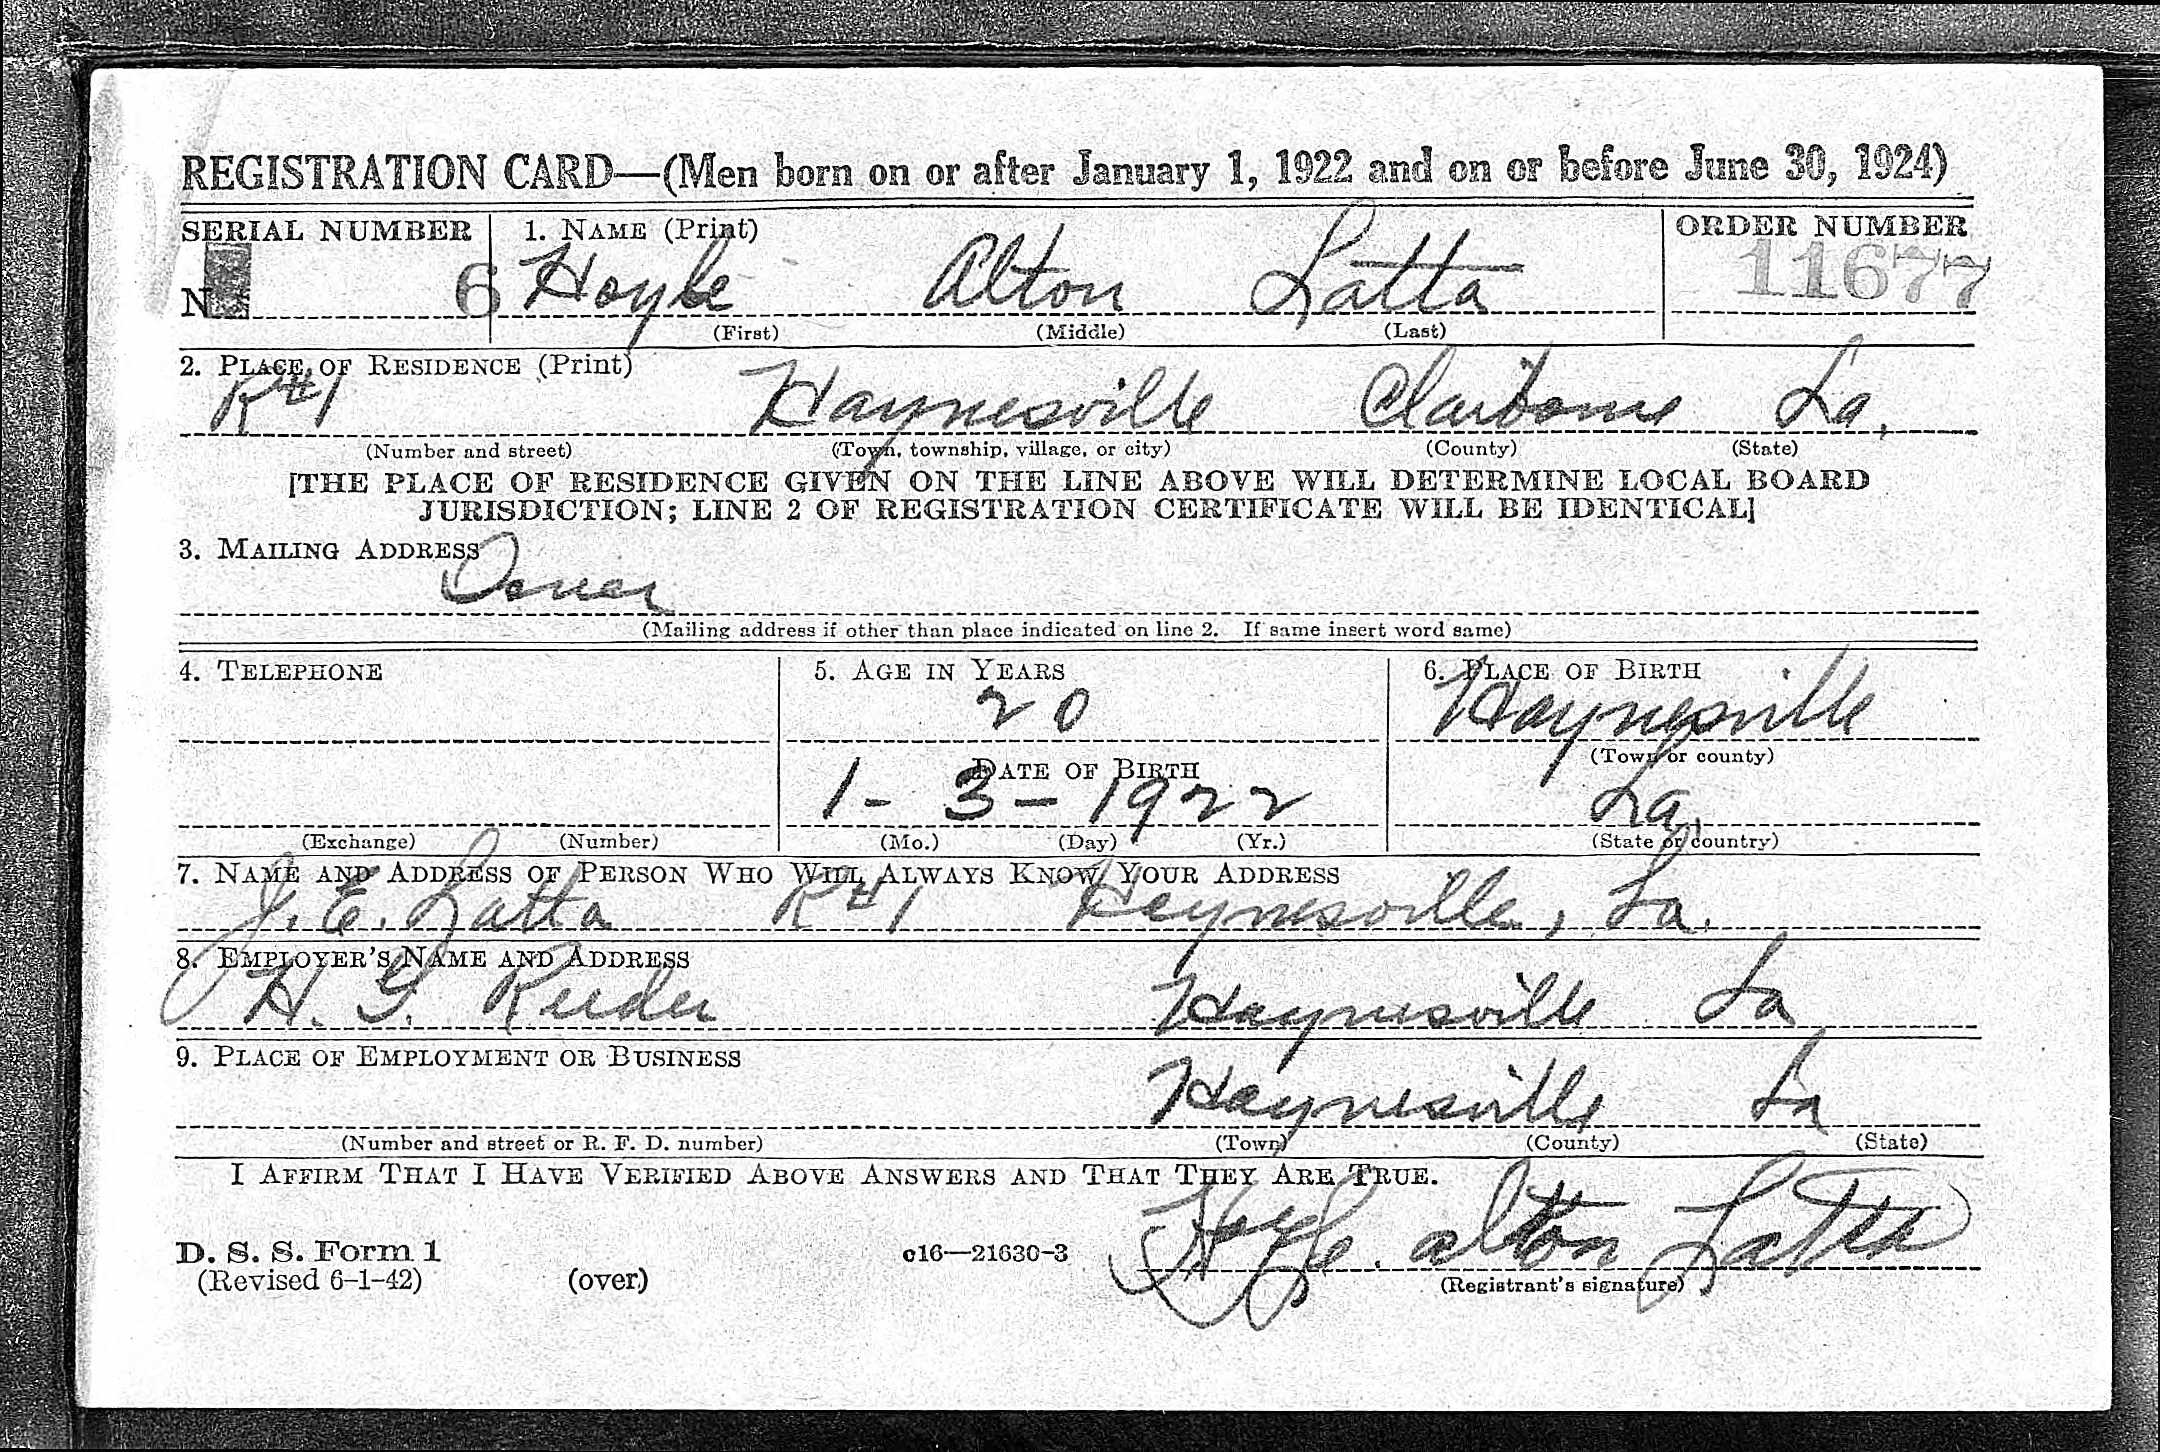 REGISTRATION CARD—(Men born on or after January 1, 1922 and on or before June 30, 1924)
SERIAL NUMBER 1. NAME (Print) ORDER NUMBER
N 6 Hoyle Alton Latta 11677
(First) (Middle) (Last)
2. PLACE OF RESIDENCE (Print)
R#1 Haynesville Claiborne La.
(Number and street) (Town, township, village, or city) (County) (State)
[THE PLACE OF RESIDENCE GIVEN ON THE LINE ABOVE WILL DETERMINE LOCAL BOARD
JURISDICTION; LINE 2 OF REGISTRATION CERTIFICATE WILL BE IDENTICAL]
3. MAILING ADDRESS
(Mailing address if other than place indicated on line 2. If same insert word same)
4. TELEPHONE 5. AGE IN YEARS 6. PLACE OF BIRTH
20 Haynesville
(Town or county)
DATE OF BIRTH
1 - 3 - 1922 La.
(Exchange) (Number) (Mo.) (Day) (Yr.) (State or country)
7. NAME AND ADDRESS OF PERSON WHO WILL ALWAYS KNOW YOUR ADDRESS
J. E. Latta R#1 Haynesville, La.
8. EMPLOYER'S NAME AND ADDRESS
H. G. Reeder Haynesville La
9. PLACE OF EMPLOYMENT OR BUSINESS
Haynesville La
(Number and street or R. F. D. number) (Town) (County) (State)
I AFFIRM THAT I HAVE VERIFIED ABOVE ANSWERS AND THAT THEY ARE TRUE.
Hoyle. alton Latta
D. S. S. Form 1 c16—21630-3
(Revised 6-1-42) (over) (Registrant's signature)